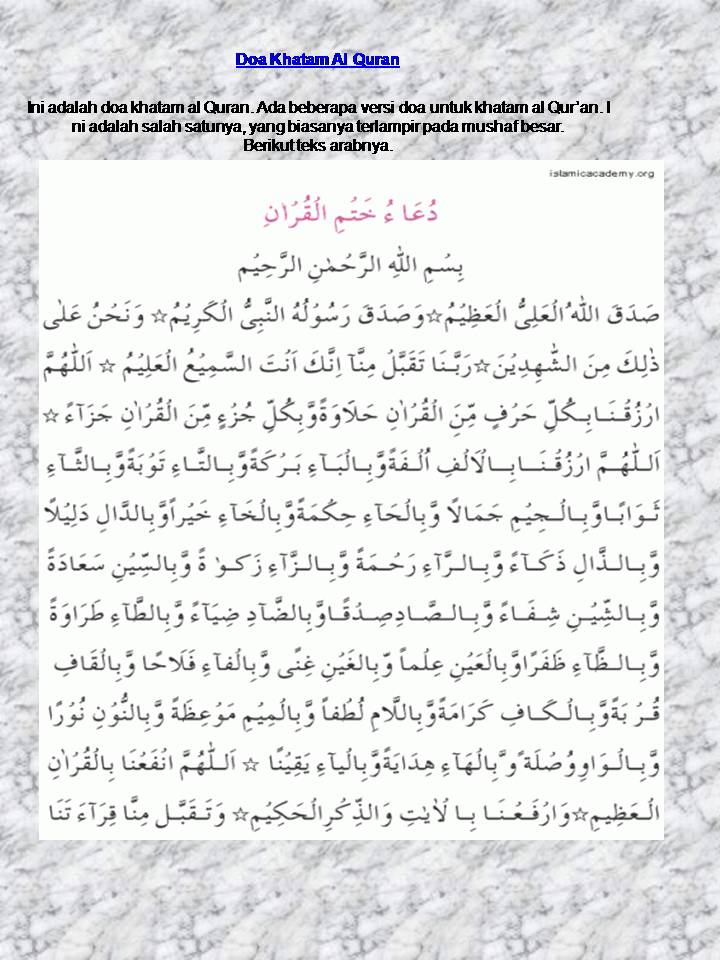 Doa Khatam Al Quran
Ini adalah doa khatam al Quran. Ada beberapa versi doa untuk khatam al Qur’an. I
ni adalah salah satunya, yang biasanya terlampir pada mushaf besar.
Berikut teks arabnya.
islamicacademy.org
دُعَاءُ خَتْمِ الْقُرْاٰنِ
بِسْمِ اللهِ الرَّحْمٰنِ الرَّحِيْمِ
صَدَقَ اللهُ الْعَلِىُّ الْعَظِيْمُ☆وَصَدَقَ رَسُوْلُهُ النَّبِىُّ الْكَرِيْمُ☆ وَنَحْنُ عَلٰى
ذٰلِكَ مِنَ الشّٰهِدِيْنَ☆رَبَّنَا تَقَبَّلْ مِنَّآ اِنَّكَ اَنْتَ السَّمِيْعُ الْعَلِيْمُ ☆ اَللّٰهُمَّ
ارْزُقْنَا بِكُلِّ حَرْفٍ مِّنَ الْقُرْاٰنِ حَلَاوَةً وَّبِكُلِّ جُزْءٍ مِّنَ الْقُرْاٰنِ جَزَآءً ☆
اَللّٰهُمَّ ارْزُقْنَا بِالْاَلْفِ اُلْفَةً وَّبِالْبَآءِ بَرَكَةً وَّبِالتَّآءِ تَوْبَةً وَّبِالثَّآءِ
ثَوَابًا وَّبِالْجِيْمِ جَمَالًا وَّبِالْحَآءِ حِكْمَةً وَّبِالْخَآءِ خَيْراً وَّبِالدَّالِ دَلِيْلًا
وَّبِالذَّالِ ذَكَآءً وَّبِالرَّآءِ رَحْمَةً وَّبِالزَّآءِ زَكٰوةً وَّبِالسِّيْنِ سَعَادَةً
وَّبِالشِّيْنِ شِفَاءً وَّبِالصَّادِ صِدْقًا وَّبِالضَّآدِ ضِيَآءً وَّبِالطَّآءِ طَرَاوَةً
وَّبِالظَّآءِ ظَفَرًا وَّبِالْعَيْنِ عِلْماً وَّبِالْغَيْنِ غِنًى وَّبِالْفَآءِ فَلَاحًا وَّبِالْقَافِ
قُرْبَةً وَّبِالْكَافِ كَرَامَةً وَّبِاللَّامِ لُطْفاً وَّبِالْمِيْمِ مَوْعِظَةً وَّبِالنُّوْنِ نُوْرًا
وَّبِالْوَاوِ وُصْلَةً وَّبِالْهَآءِ هِدَايَةً وَّبِالْيَآءِ يَقِيْنًا ☆ اَللّٰهُمَّ انْفَعْنَا بِالْقُرْاٰنِ
الْعَظِيْمِ☆وَارْفَعْنَا بِالْاٰيٰتِ وَالذِّكْرِ الْحَكِيْمِ☆ وَتَقَبَّلْ مِنَّا قِرَآءَتَنَا